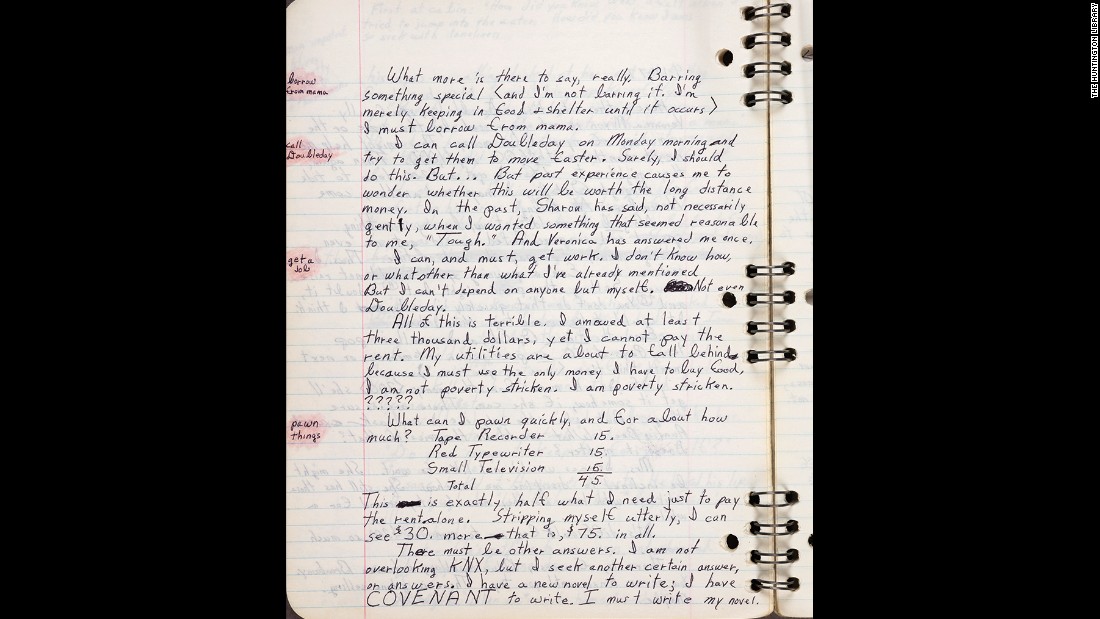 borrow
from mama
call
Doubleday
get a
job
pawn
things
What more is there to say, really. Barring
something special (and I'm not barring it. I'm
merely keeping in food + shelter until it occurs)
I must borrow from mama.
I can call Doubleday on Monday morning and
try to get them to move faster. Surely, I should
do this. But... But past experience causes me to
wonder whether this will be worth the long distance
money. In the past, Sharon has said, not necessarily
gently, when I wanted something that seemed reasonable
to me, "Tough." And Veronica has answered me once.
I can, and must, get work. I don't know how,
or what other than what I've already mentioned
But I can't depend on anyone but myself. Not even
Doubleday.
All of this is terrible. I am owed at least
three thousand dollars, yet I cannot pay the
rent. My utilities are about to fall behind
because I must use the only money I have to buy food,
I am not poverty stricken. I am poverty stricken.
?????
What can I pawn quickly, and for about how
much? Tape Recorder 15.
Red Typewriter 15.
Small Television 15
Total 45.
This is exactly half what I need just to pay
the rent alone. Stripping myself utterly, I can
see $30. more — that is, $75. in all.
There must be other answers. I am not
overlooking KNX, but I seek another certain answer,
or answers. I have a new novel to write; I have
COVENANT to write. I must write my novel.
THE HUNTINGTON LIBRARY